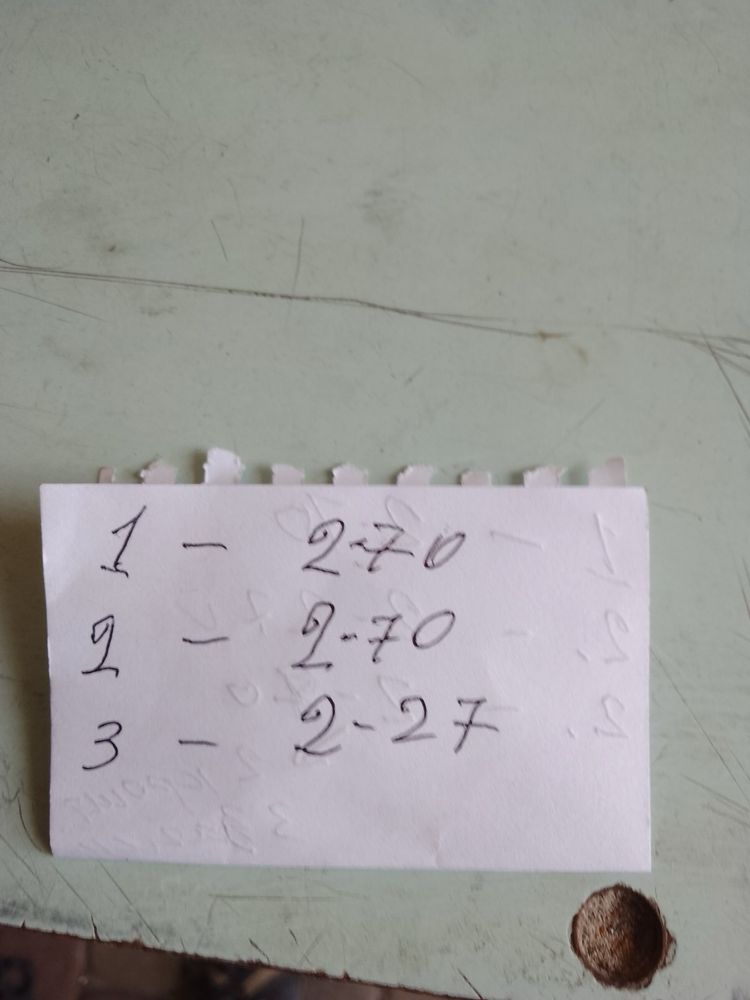 1 - 2-70
2 - 2-70
3 - 2-27